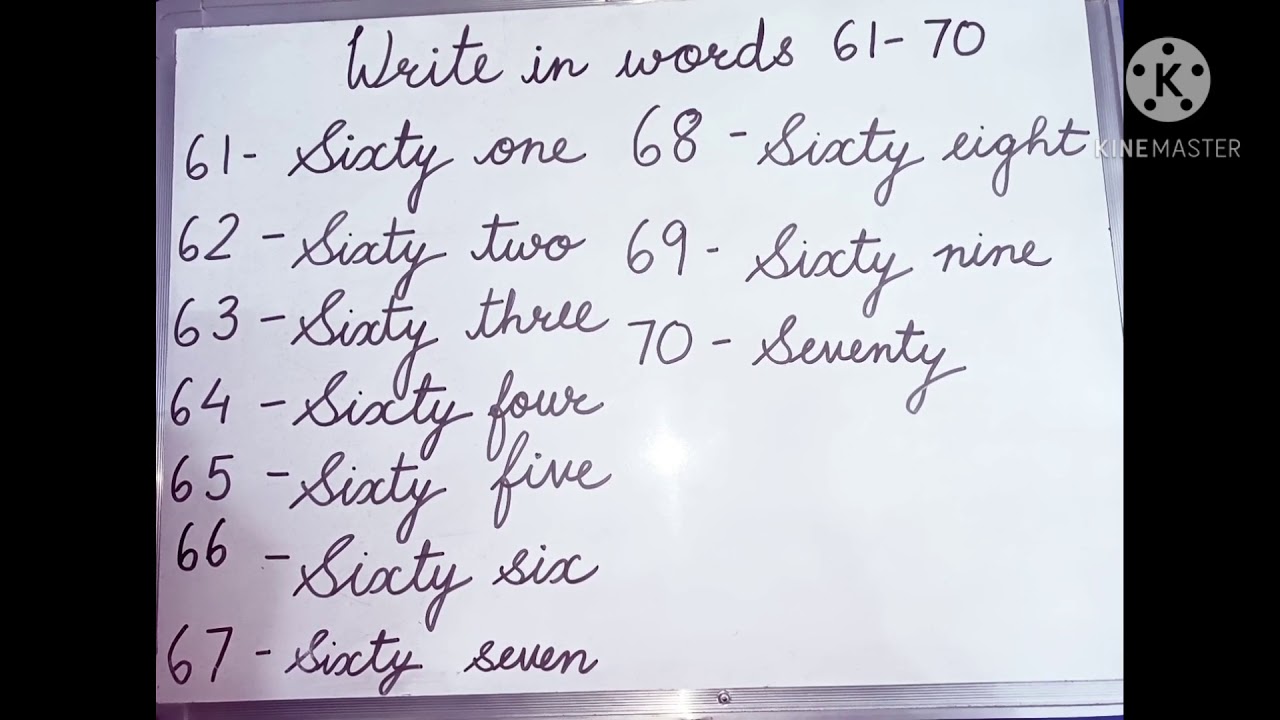 Write in words 61-70
61- Sixty one
62 - Sixty two
63 - Sixty three
64 - Sixty four
65 - Sixty five
66 - Sixty six
67 - Sixty seven
68 - Sixty eight
69 - Sixty nine
70 - Seventy
K
KINEMASTER